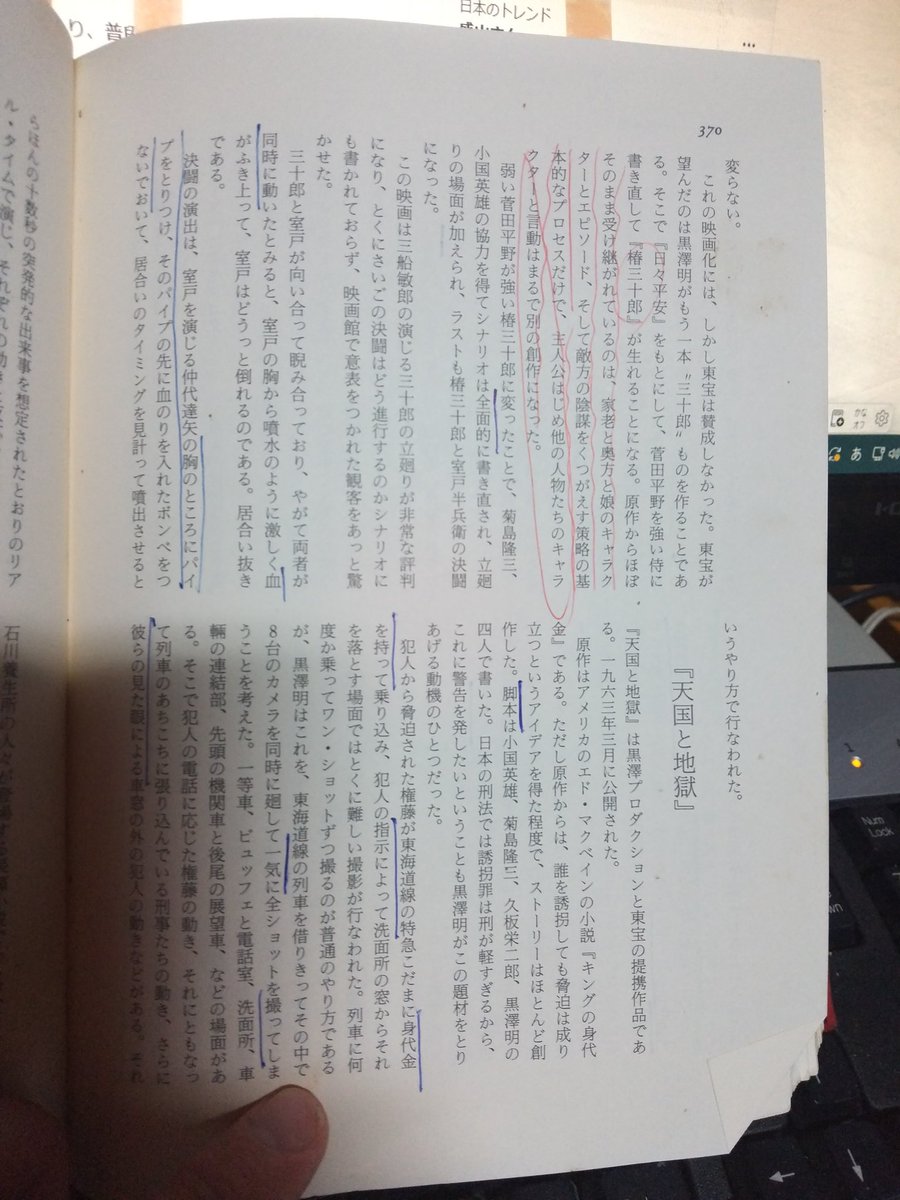 370
変らない。
これの映画化には、しかし東宝は賛成しなかった。東宝が
望んだのは黒澤明がもう一本〝三十郎〟ものを作ることであ
る。そこで『日々平安』をもとにして、菅田平野を強い侍に
書き直して『椿三十郎』が生れることになる。原作からほぼ
そのまま受け継がれているのは、家老と奥方と娘のキャラク
ターとエピソード、そして敵方の陰謀をくつがえす策略の基
本的なプロセスだけで、主人公はじめ他の人物たちのキャラ
クターと言動はまるで別の創作になった。
弱い菅田平野が強い椿三十郎に変ったことで、菊島隆三、
小国英雄の協力を得てシナリオは全面的に書き直され、立廻
りの場面が加えられ、ラストも椿三十郎と室戸半兵衛の決闘
になった。
この映画は三船敏郎の演じる三十郎の立廻りが非常な評判
になり、とくにさいごの決闘はどう進行するのかシナリオに
も書かれておらず、映画館で意表をつかれた観客をあっと驚
かせた。
三十郎と室戸が向い合って睨み合っており、やがて両者が
同時に動いたとみると、室戸の胸から噴水のように激しく血
がふき上って、室戸はどうっと倒れるのである。居合い抜き
である。
決闘の演出は、室戸を演じる仲代達矢の胸のところにパイ
プをとりつけ、そのパイプの先に血のりを入れたボンベをつ
ないでおいて、居合いのタイミングを見計って噴出させると
いうやり方で行なわれた。
『天国と地獄』
『天国と地獄』は黒澤プロダクションと東宝の提携作品であ
る。一九六三年三月に公開された。
原作はアメリカのエド・マクベインの小説『キングの身代
金』である。ただし原作からは、誰を誘拐しても脅迫は成り
立つというアイデアを得た程度で、ストーリーはほとんど創
作した。脚本は小国英雄、菊島隆三、久板栄二郎、黒澤明の
四人で書いた。日本の刑法では誘拐罪は刑が軽すぎるから、
これに警告を発したいということも黒澤明がこの題材をとり
あげる動機のひとつだった。
犯人から脅迫された権藤が東海道線の特急こだまに身代金
を持って乗り込み、犯人の指示によって洗面所の窓からそれ
を落とす場面ではとくに難しい撮影が行なわれた。列車に何
度か乗ってワン・ショットずつ撮るのが普通のやり方である
が、黒澤明はこれを、東海道線の列車を借りきってその中で
8台のカメラを同時に廻して一気に全ショットを撮ってしま
うことを考えた。一等車、ビュッフェと電話室、洗面所、車
輛の連結部、先頭の機関車と後尾の展望車、などの場面があ
る。そこで犯人の電話に応じた権藤の動き、それにともなっ
て列車のあちこちに張り込んでいる刑事たちの動き、さらに
彼らの見た眼による車窓の外の犯人の動きなどがある。それ
日本のトレンド
Num
Lock
1
あ
かな
オフ